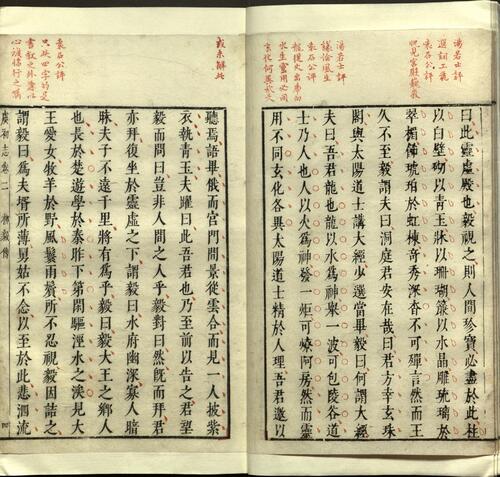 湯若士評
選詞工氣
袁石公評
曰此靈虛殿也毅視之則人間珍寶必盡於此柱
以白壁砌以青玉牀以珊瑚簾以水晶雕琉璃於
翠楣飾琥珀於虹棟奇秀深杳不可殫言然而王
久不至毅謂夫曰洞庭君安在哉曰君方幸玄珠
湯若士評
議論風生
袁石公評
龍從火出
水生靈用必同
玄化何異
閣與太陽道士講大經少選當畢毅曰何謂大經
夫曰吾君龍也龍以水爲神舉一波可包陵谷道
士乃人也人以火爲神發一炬可燎阿房然而靈
用不同玄化各異太陽道士精於人理吾君邀以
或未解此
聽焉語畢俄而宮門間景從雲合而見一人披紫
衣執青玉夫躍曰此吾君也乃至前以告之君望
毅而問曰豈非人間之人乎毅對曰然旣而拜君
亦拜復坐於靈虛之下謂毅曰水府幽深寡人暗
昧夫子不遠千里將有爲乎毅曰毅大王之鄉人
袁石公評
只此四字的是
也長於楚遊學於秦昨下第閒驅涇水之涘見大
王愛女牧羊於野風鬟雨鬢所不忍視毅因詰之
謂毅曰爲夫壻所薄舅姑不念以至於此悲泗流
虞初志卷二 柳毅傳 四